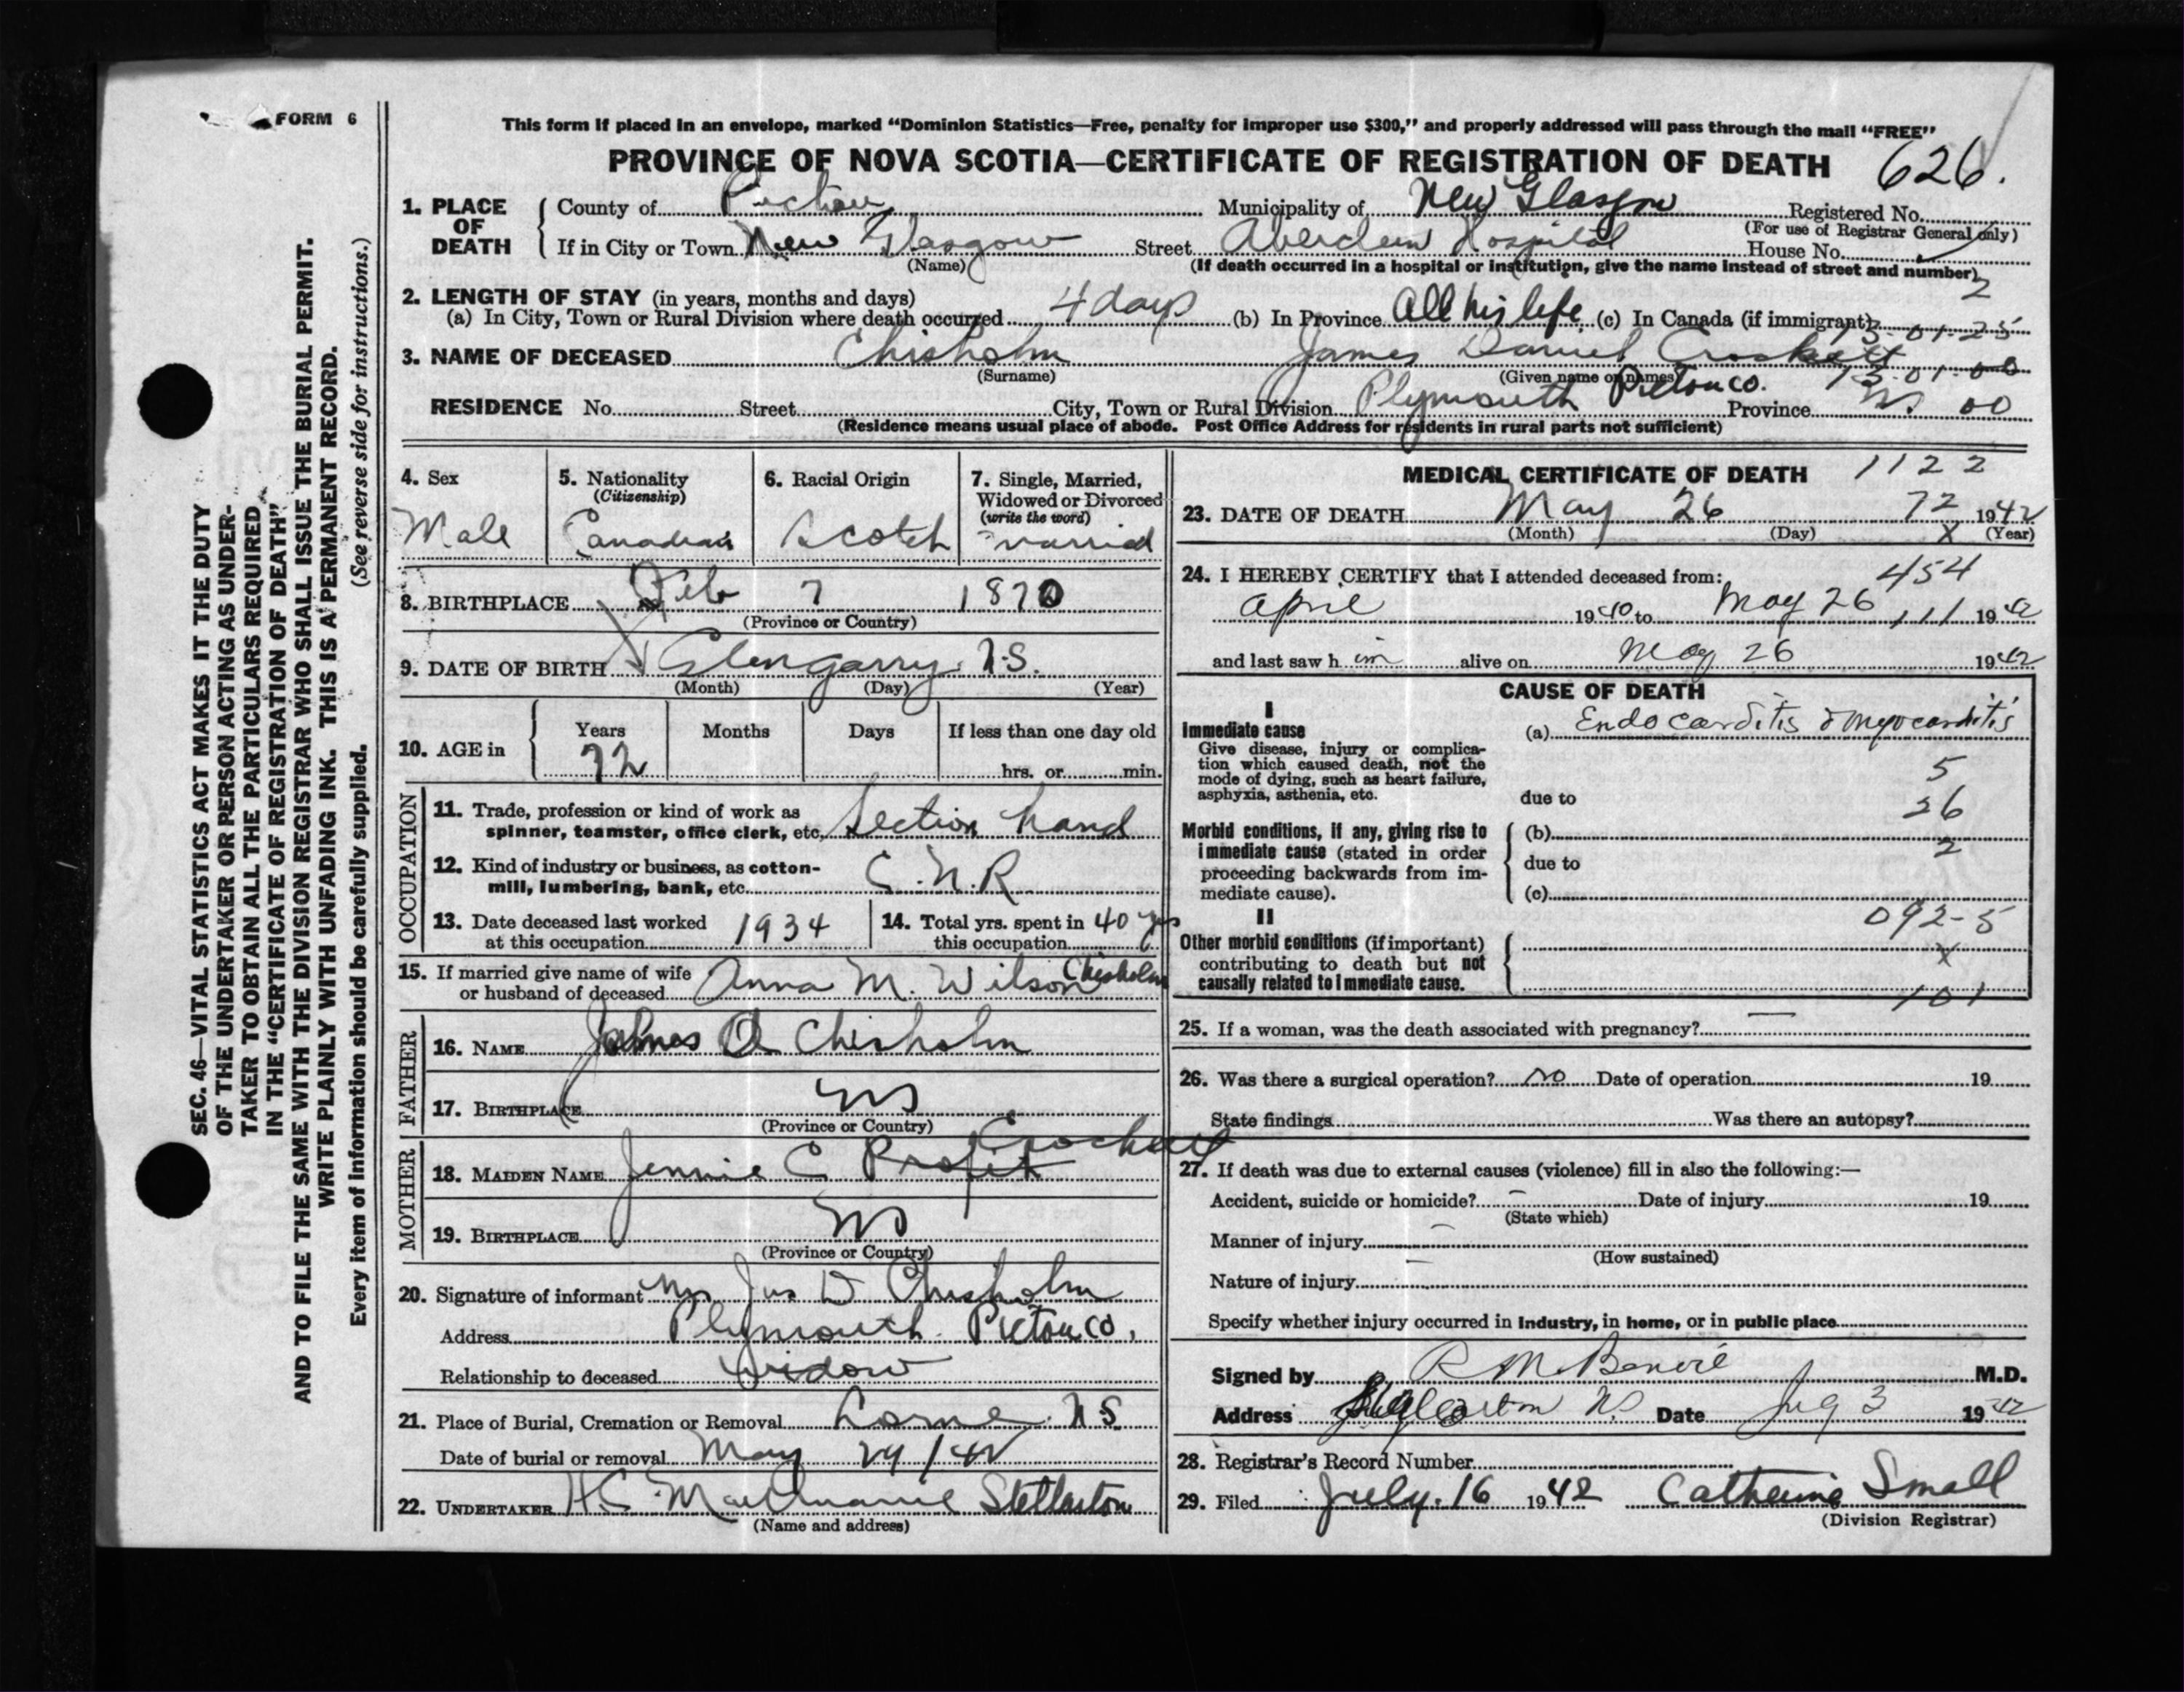 FORM 6
This form if placed in an envelope, marked "Dominion Statistics—Free, penalty for improper use $300," and properly addressed will pass through the mail "FREE"
PROVINCE OF NOVA SCOTIA—CERTIFICATE OF REGISTRATION OF DEATH 626.
1. PLACE OF DEATH County of Pictou Municipality of New Glasgow Registered No.
(For use of Registrar General only)
If in City or Town New Glasgow Street Aberdeen Hospital House No.
(Name) (If death occurred in a hospital or institution, give the name instead of street and number)
2
2. LENGTH OF STAY (in years, months and days)
(a) In City, Town or Rural Division where death occurred 4 days (b) In Province All his life (c) In Canada (if immigrant)
13-01-25
3. NAME OF DECEASED Chisholm James Daniel Crockett
(Surname) (Given name or names) 13-01-00
RESIDENCE No. Street City, Town or Rural Division Plymouth Pictou Co. Province NS 00
(Residence means usual place of abode. Post Office Address for residents in rural parts not sufficient)
4. Sex Male
5. Nationality (Citizenship) Canadian
6. Racial Origin Scotch
7. Single, Married, Widowed or Divorced (write the word) Married
8. BIRTHPLACE Feb 7 1870
(Province or Country)
9. DATE OF BIRTH Glengarry N.S.
(Month) (Day) (Year)
10. AGE in Years 72 Months Days If less than one day old
hrs. or min.
OCCUPATION
11. Trade, profession or kind of work as
spinner, teamster, office clerk, etc. Section hand
12. Kind of industry or business, as cotton-
mill, lumbering, bank, etc. C.N.R
13. Date deceased last worked
at this occupation 1934
14. Total yrs. spent in
this occupation 40 yrs
15. If married give name of wife
or husband of deceased Anna M. Wilson Chisholm
FATHER
16. NAME James D Chisholm
17. BIRTHPLACE NS
(Province or Country)
MOTHER
18. MAIDEN NAME Jennie C Crockett
19. BIRTHPLACE NS
(Province or Country)
20. Signature of informant Mrs Jas D Chisholm
Address Plymouth Pictou Co.
Relationship to deceased widow
21. Place of Burial, Cremation or Removal Lorne N S
Date of burial or removal May 29/42
22. UNDERTAKER H.C. Stellarton
(Name and address)
MEDICAL CERTIFICATE OF DEATH 1122
23. DATE OF DEATH May 26 72 1942
(Month) (Day) X (Year)
24. I HEREBY CERTIFY that I attended deceased from: 454
April 1940 to May 26 111 1942
and last saw him alive on May 26 1942
CAUSE OF DEATH
I
Immediate cause (a) Endocarditis & myocarditis
Give disease, injury or complica-
tion which caused death, not the
mode of dying, such as heart failure,
asphyxia, asthenia, etc.
5
due to 26
Morbid conditions, if any, giving rise to
immediate cause (stated in order
proceeding backwards from im-
mediate cause).
(b)
2
due to
(c)
II
092-5
Other morbid conditions (if important)
contributing to death but not
causally related to immediate cause.
X
101
25. If a woman, was the death associated with pregnancy? —
26. Was there a surgical operation? no Date of operation 19
State findings Was there an autopsy?
27. If death was due to external causes (violence) fill in also the following:—
Accident, suicide or homicide? – Date of injury 19
(State which)
Manner of injury –
(How sustained)
Nature of injury –
Specify whether injury occurred in industry, in home, or in public place
Signed by R M Benvie M.D.
Address Stellarton NS Date 3 1942
28. Registrar's Record Number
29. Filed July 16 1942 Catherine Small
(Division Registrar)
SEC. 46—VITAL STATISTICS ACT MAKES IT THE DUTY
OF THE UNDERTAKER OR PERSON ACTING AS UNDER-
TAKER TO OBTAIN ALL THE PARTICULARS REQUIRED
IN THE "CERTIFICATE OF REGISTRATION OF DEATH"
AND TO FILE THE SAME WITH THE DIVISION REGISTRAR WHO SHALL ISSUE THE BURIAL PERMIT.
WRITE PLAINLY WITH UNFADING INK. THIS IS A PERMANENT RECORD.
Every item of information should be carefully supplied. (See reverse side for instructions.)